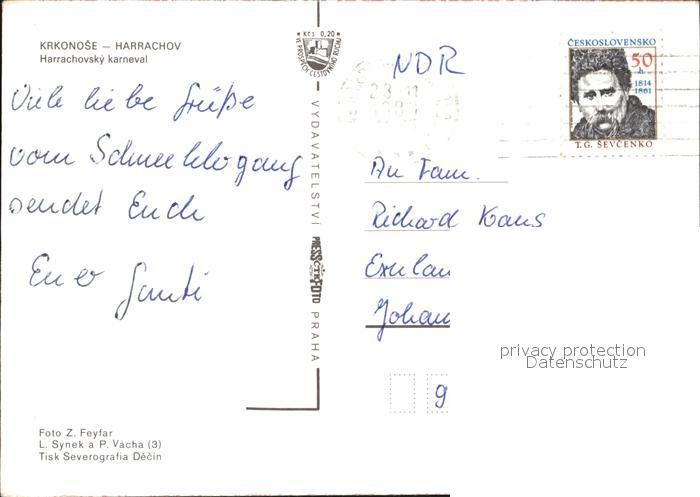 KRKONOŠE – HARRACHOV
Harrachovský karneval
Viele liebe Grüße
vom
sendet Euch
Euer
Foto Z. Feyfar
L. Synek a P. Vácha (3)
Tisk Severografia Děčín
Kčs 0,20
VE PROSPĚCH CESTOVNÍHO RUCHU
VYDAVATELSTVÍ PRESSFOTO PRAHA
NDR
ČESKOSLOVENSKO
50 h
1814
1861
T.G. ŠEVČENKO
An Fam.
Richard
Johan
9
privacy protection
Datenschutz